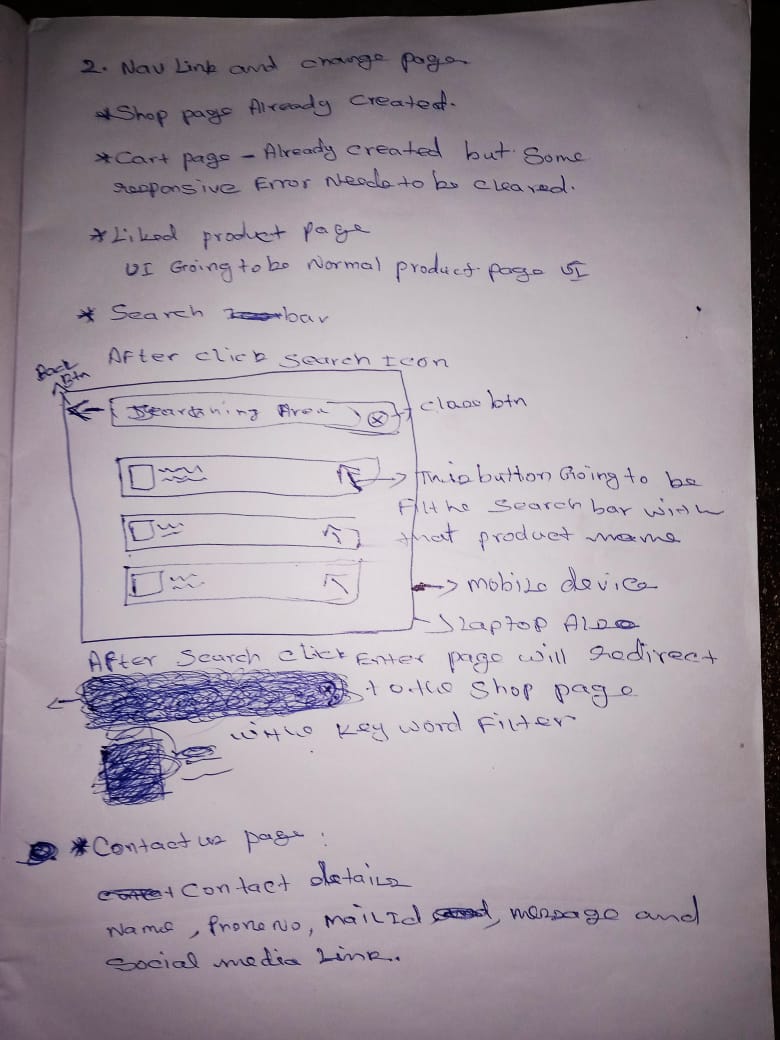 2. Nav Link and change page
* Shop page Already Created.
* Cart page - Already created but Some
responsive Error Needs to be cleared.
* Liked product page
UI Going to be Normal product page UI
* Search bar
After click search Icon
Back
Btn
Searching Area
close btn
This button Going to be
Fill the Search bar with
that product name
mobile device
Laptop Also
After Search click Enter page will redirect
to the Shop page
with Key word Filter
* Contact us page :
Contact details
Name, Phone No, Mail Id, message and
Social media Link..